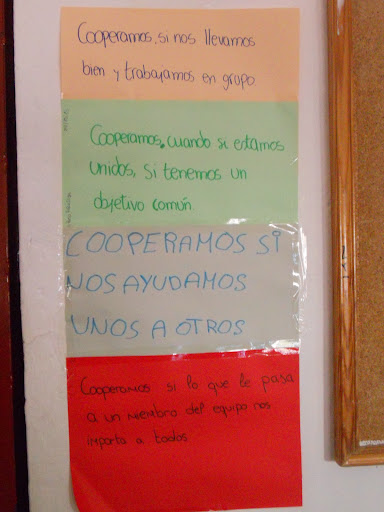 Cooperamos, si nos llevamos
bien y trabajamos en grupo
Cooperamos, cuando si estamos
unidos, si tenemos un
objetivo común.
COOPERAMOS SI
NOS AYUDAMOS
UNOS A OTROS
Cooperamos si lo que le pasa
a un miembro del equipo nos
importa a todos